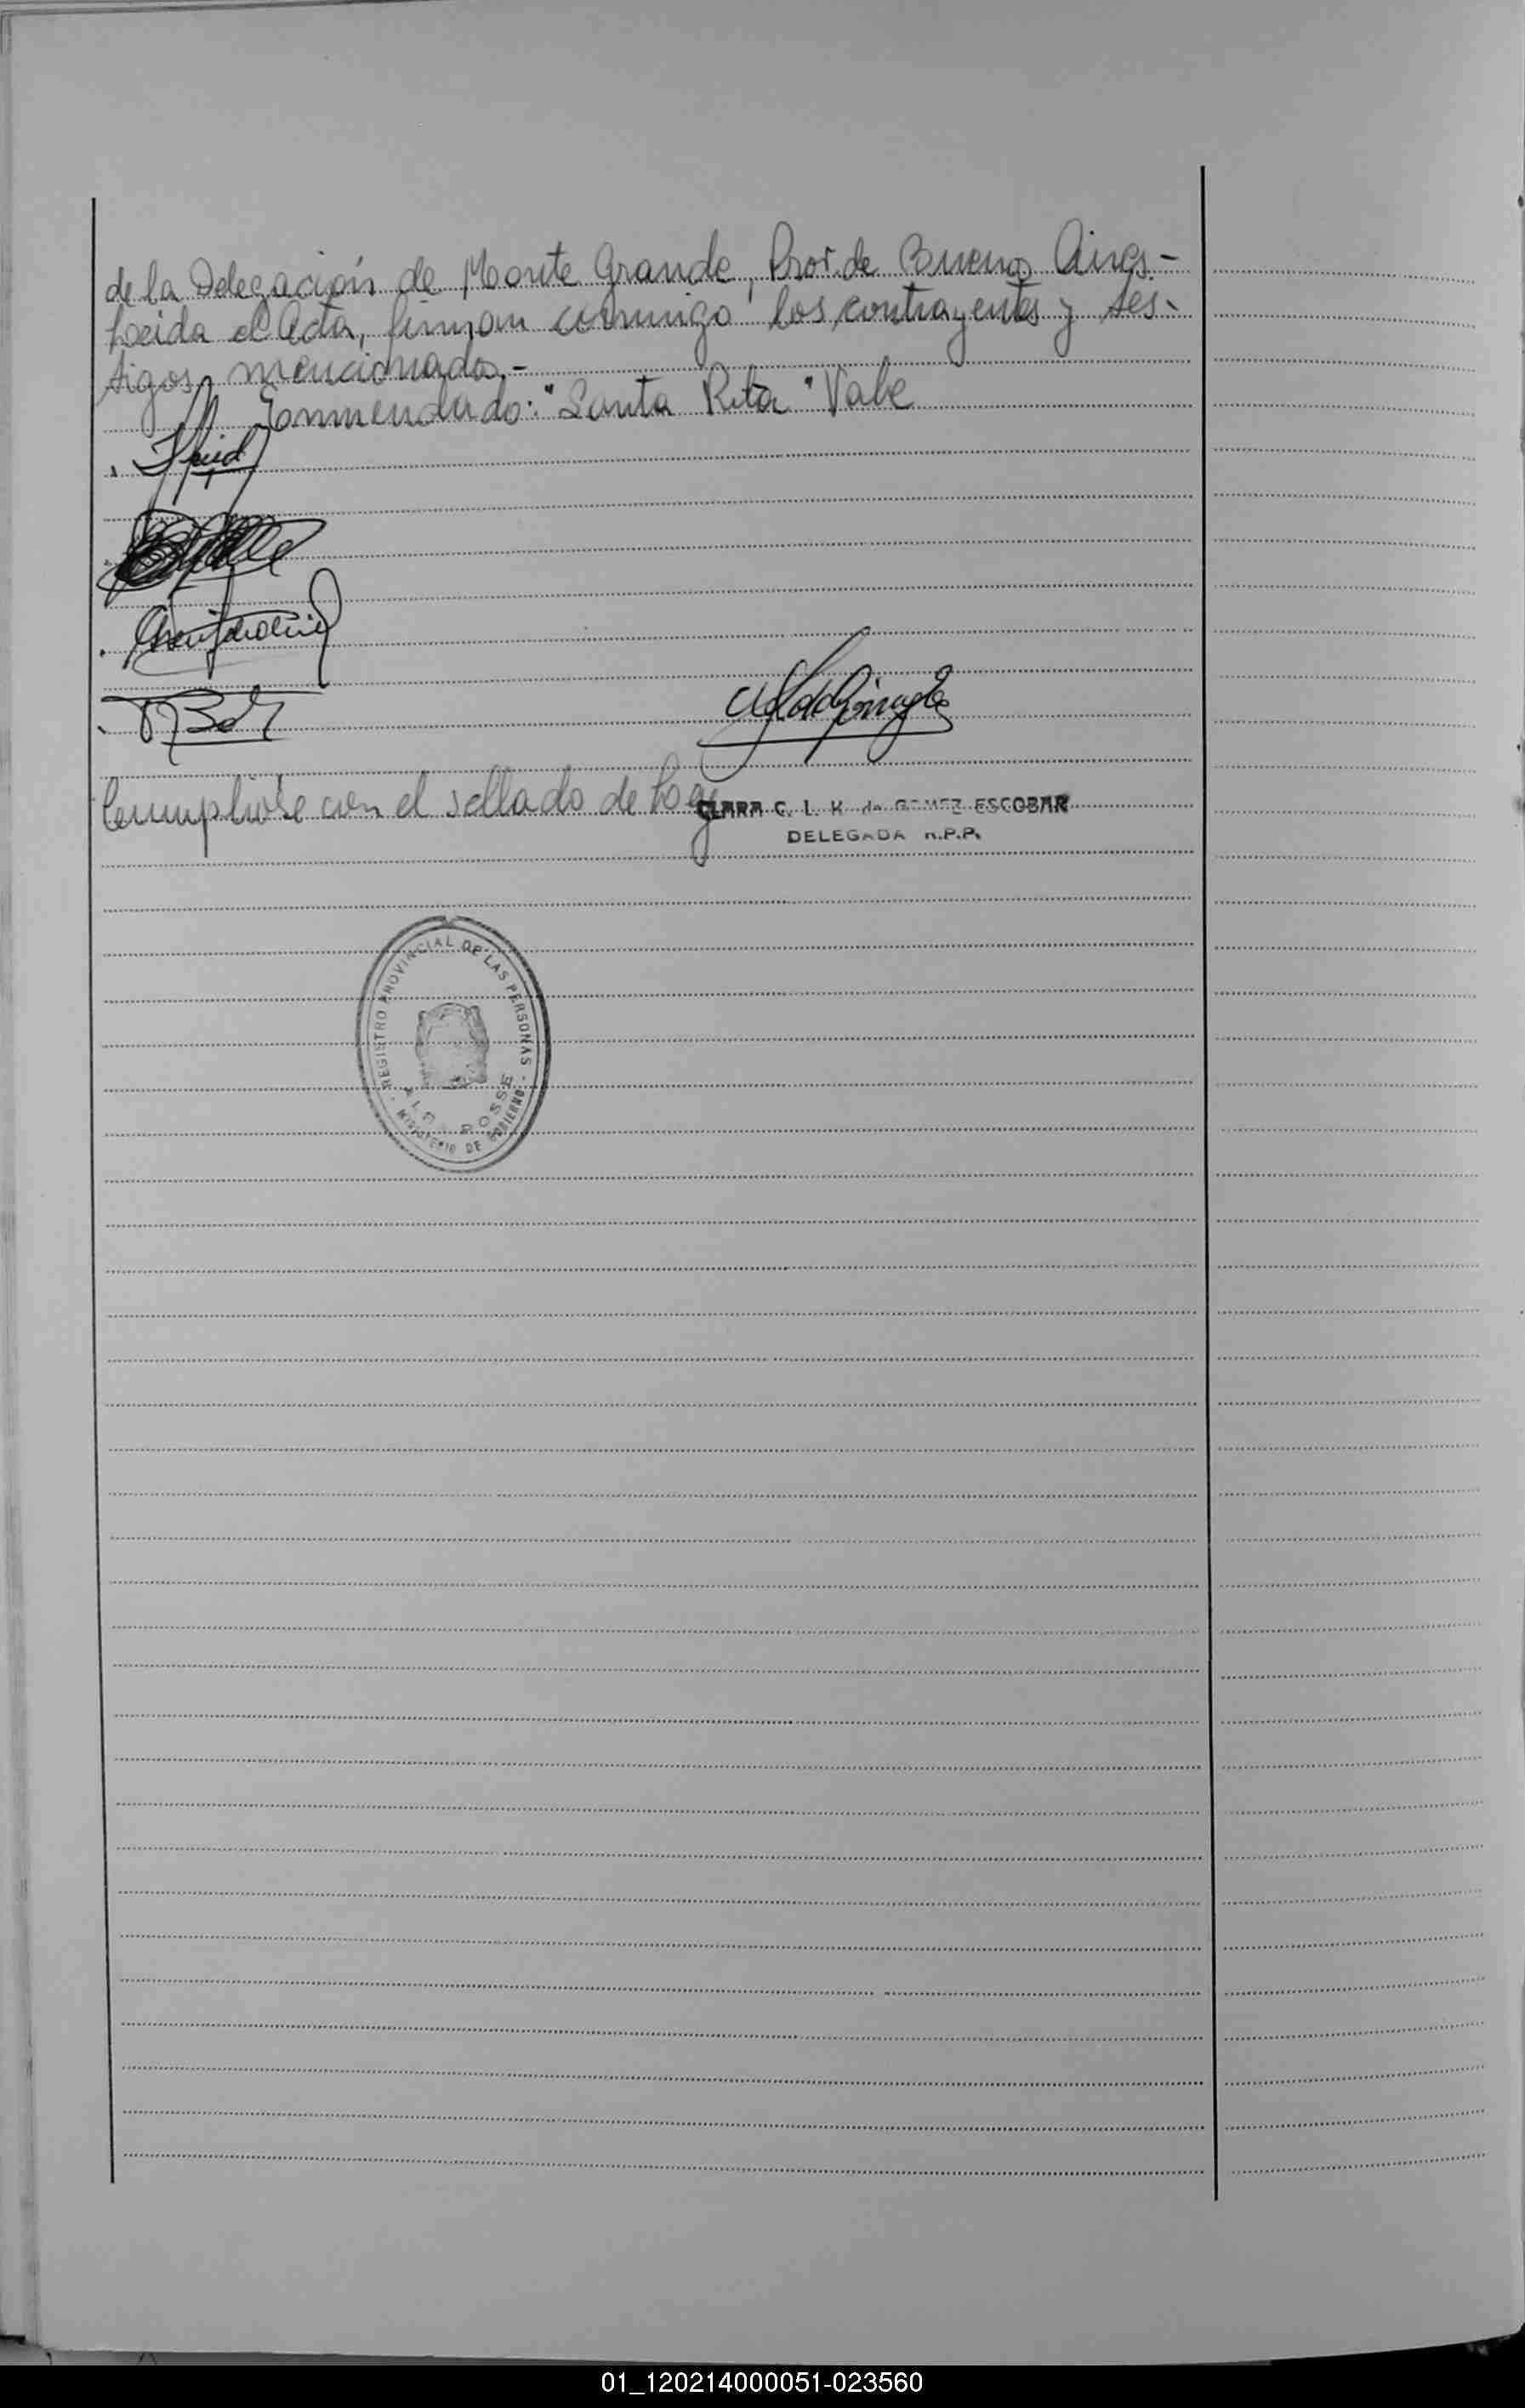 de la Delegación de Monte Grande, Prov. de Buenos Aires.-
Leida el Acta, firman conmigo los contrayentes y tes-
tigos mencionados.-
Enmendado: "Santa Rita" Vale
Cumplióse con el sellado de Ley
CLARA C. L. K. de GOMEZ ESCOBAR
DELEGADA R.P.P.
REGISTRO PROVINCIAL DE LAS PERSONAS
POSSE
MINISTERIO DE GOBIERNO
01_120214000051-023560